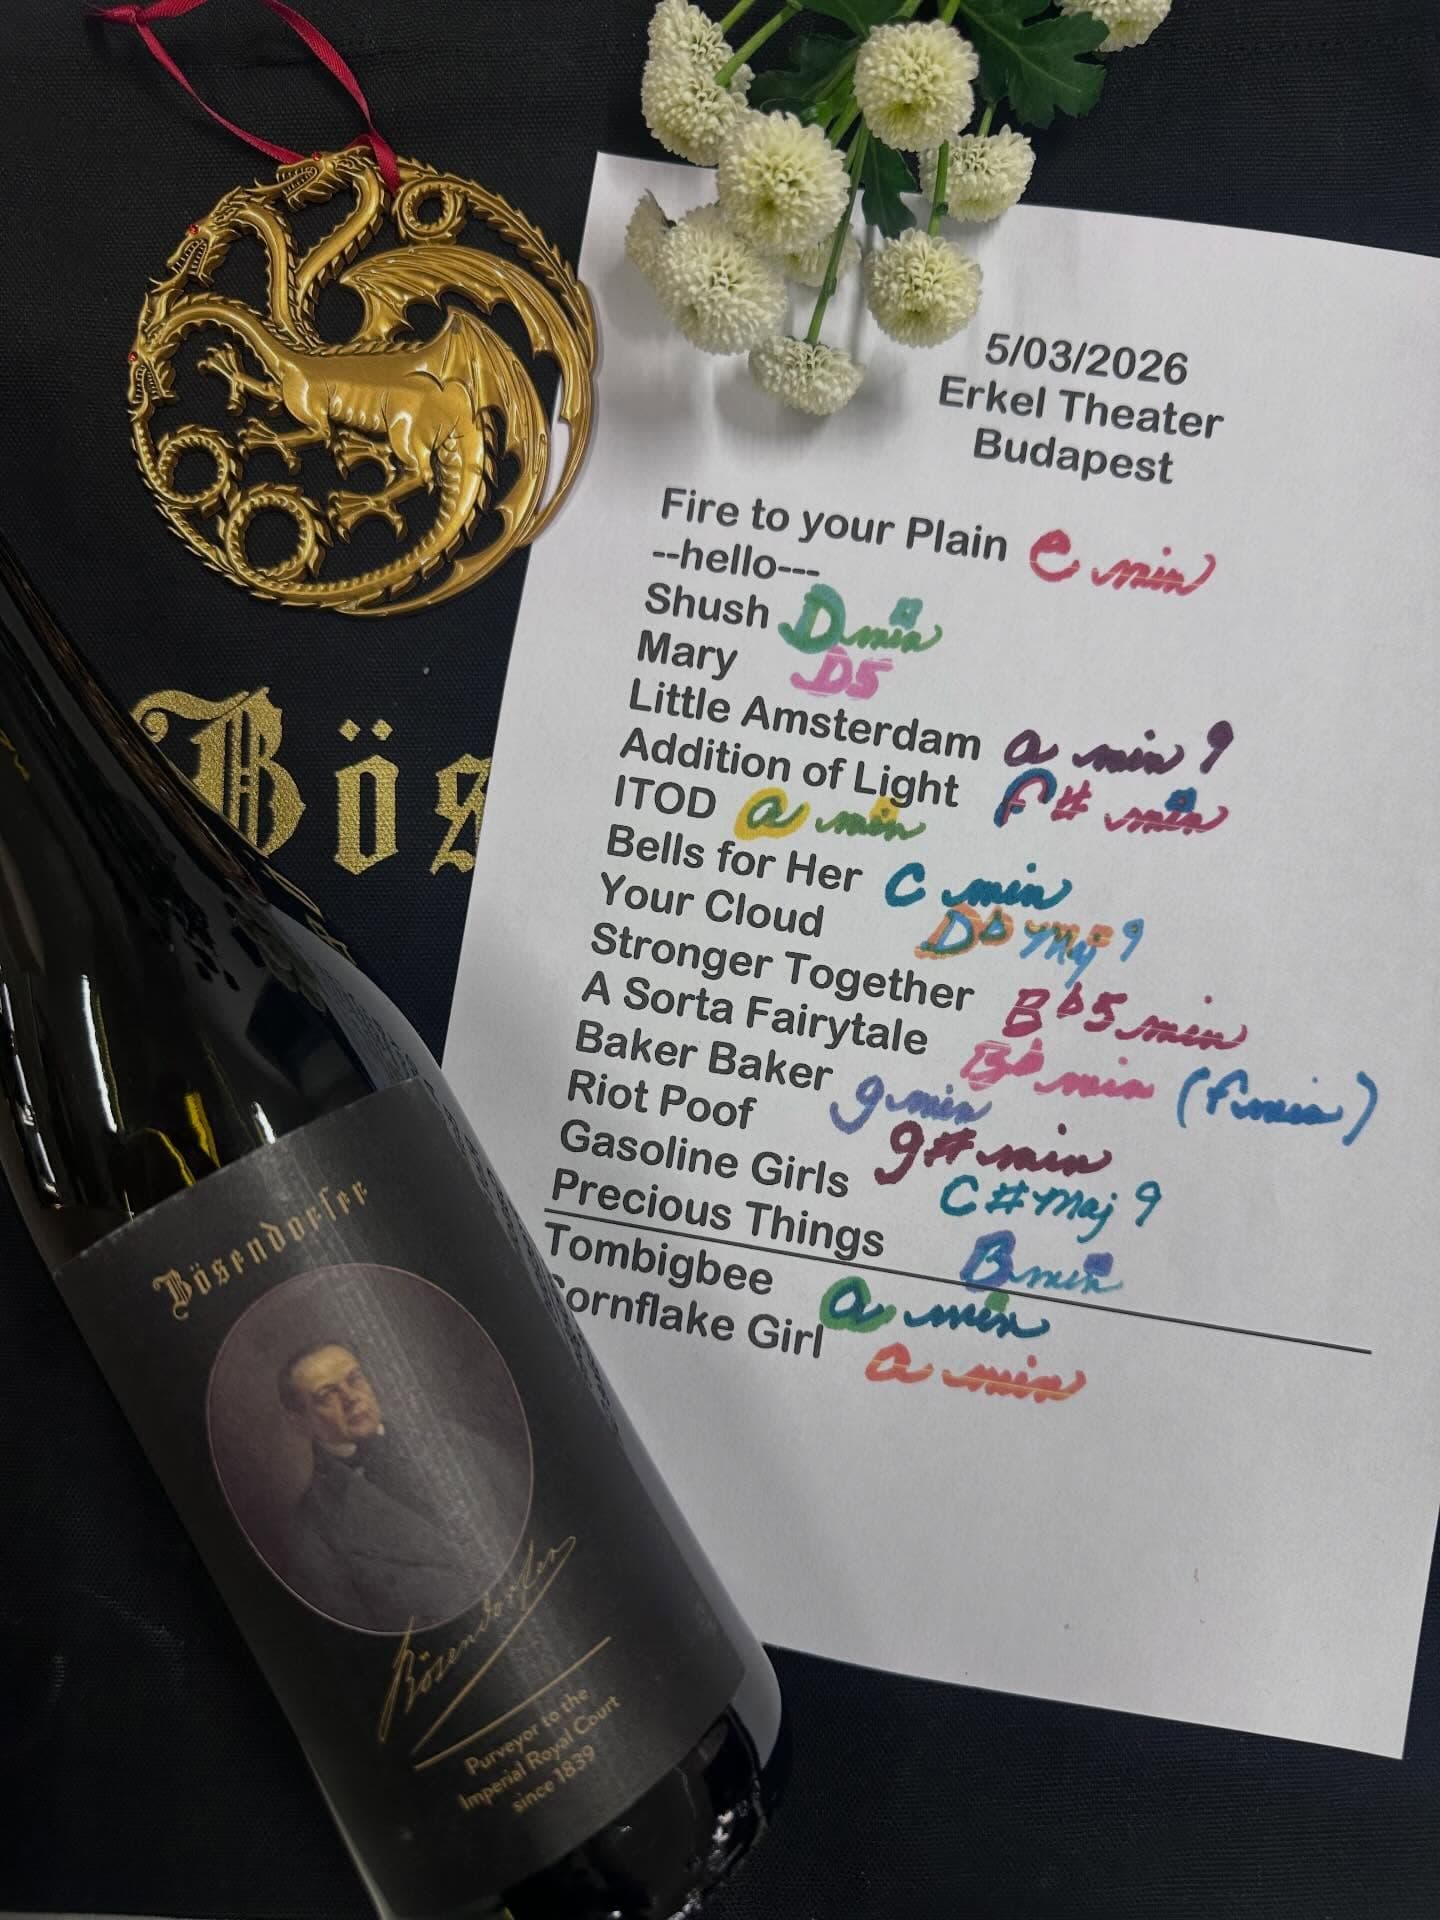 5/03/2026
Erkel Theater
Budapest
Fire to your Plain e min
--hello---
Shush D min
Mary D5
Little Amsterdam a min 9
Addition of Light f# min
ITOD a min
Bells for Her C min
Your Cloud Db Maj 9
Stronger Together Bb5 min
A Sorta Fairytale Bb min (f min)
Baker Baker g min
Riot Poof g# min
Gasoline Girls C# Maj 9
Precious Things B min
Tombigbee a min
ornflake Girl a min
Bös
Bösendorfer
Bösendorfer
Purveyor to the
Imperial Royal Court
since 1839